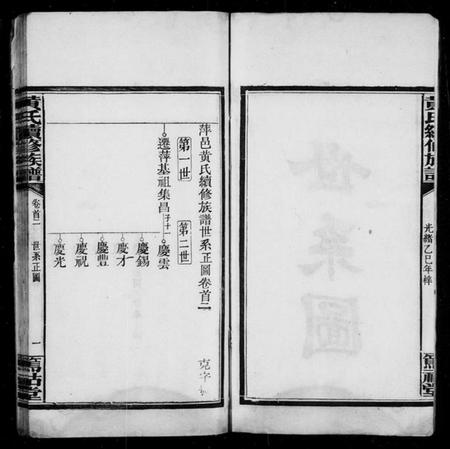 黃氏續修族譜
光緒乙巳年梓
萍邑黃氏續修族譜世系正圖卷首二
第一世
第二世
遷萍基祖集昌子十
慶雲
慶錫
慶才
慶豐
慶祝
慶光
黃氏續修族譜
卷首二
世系正圖
一
世系圖